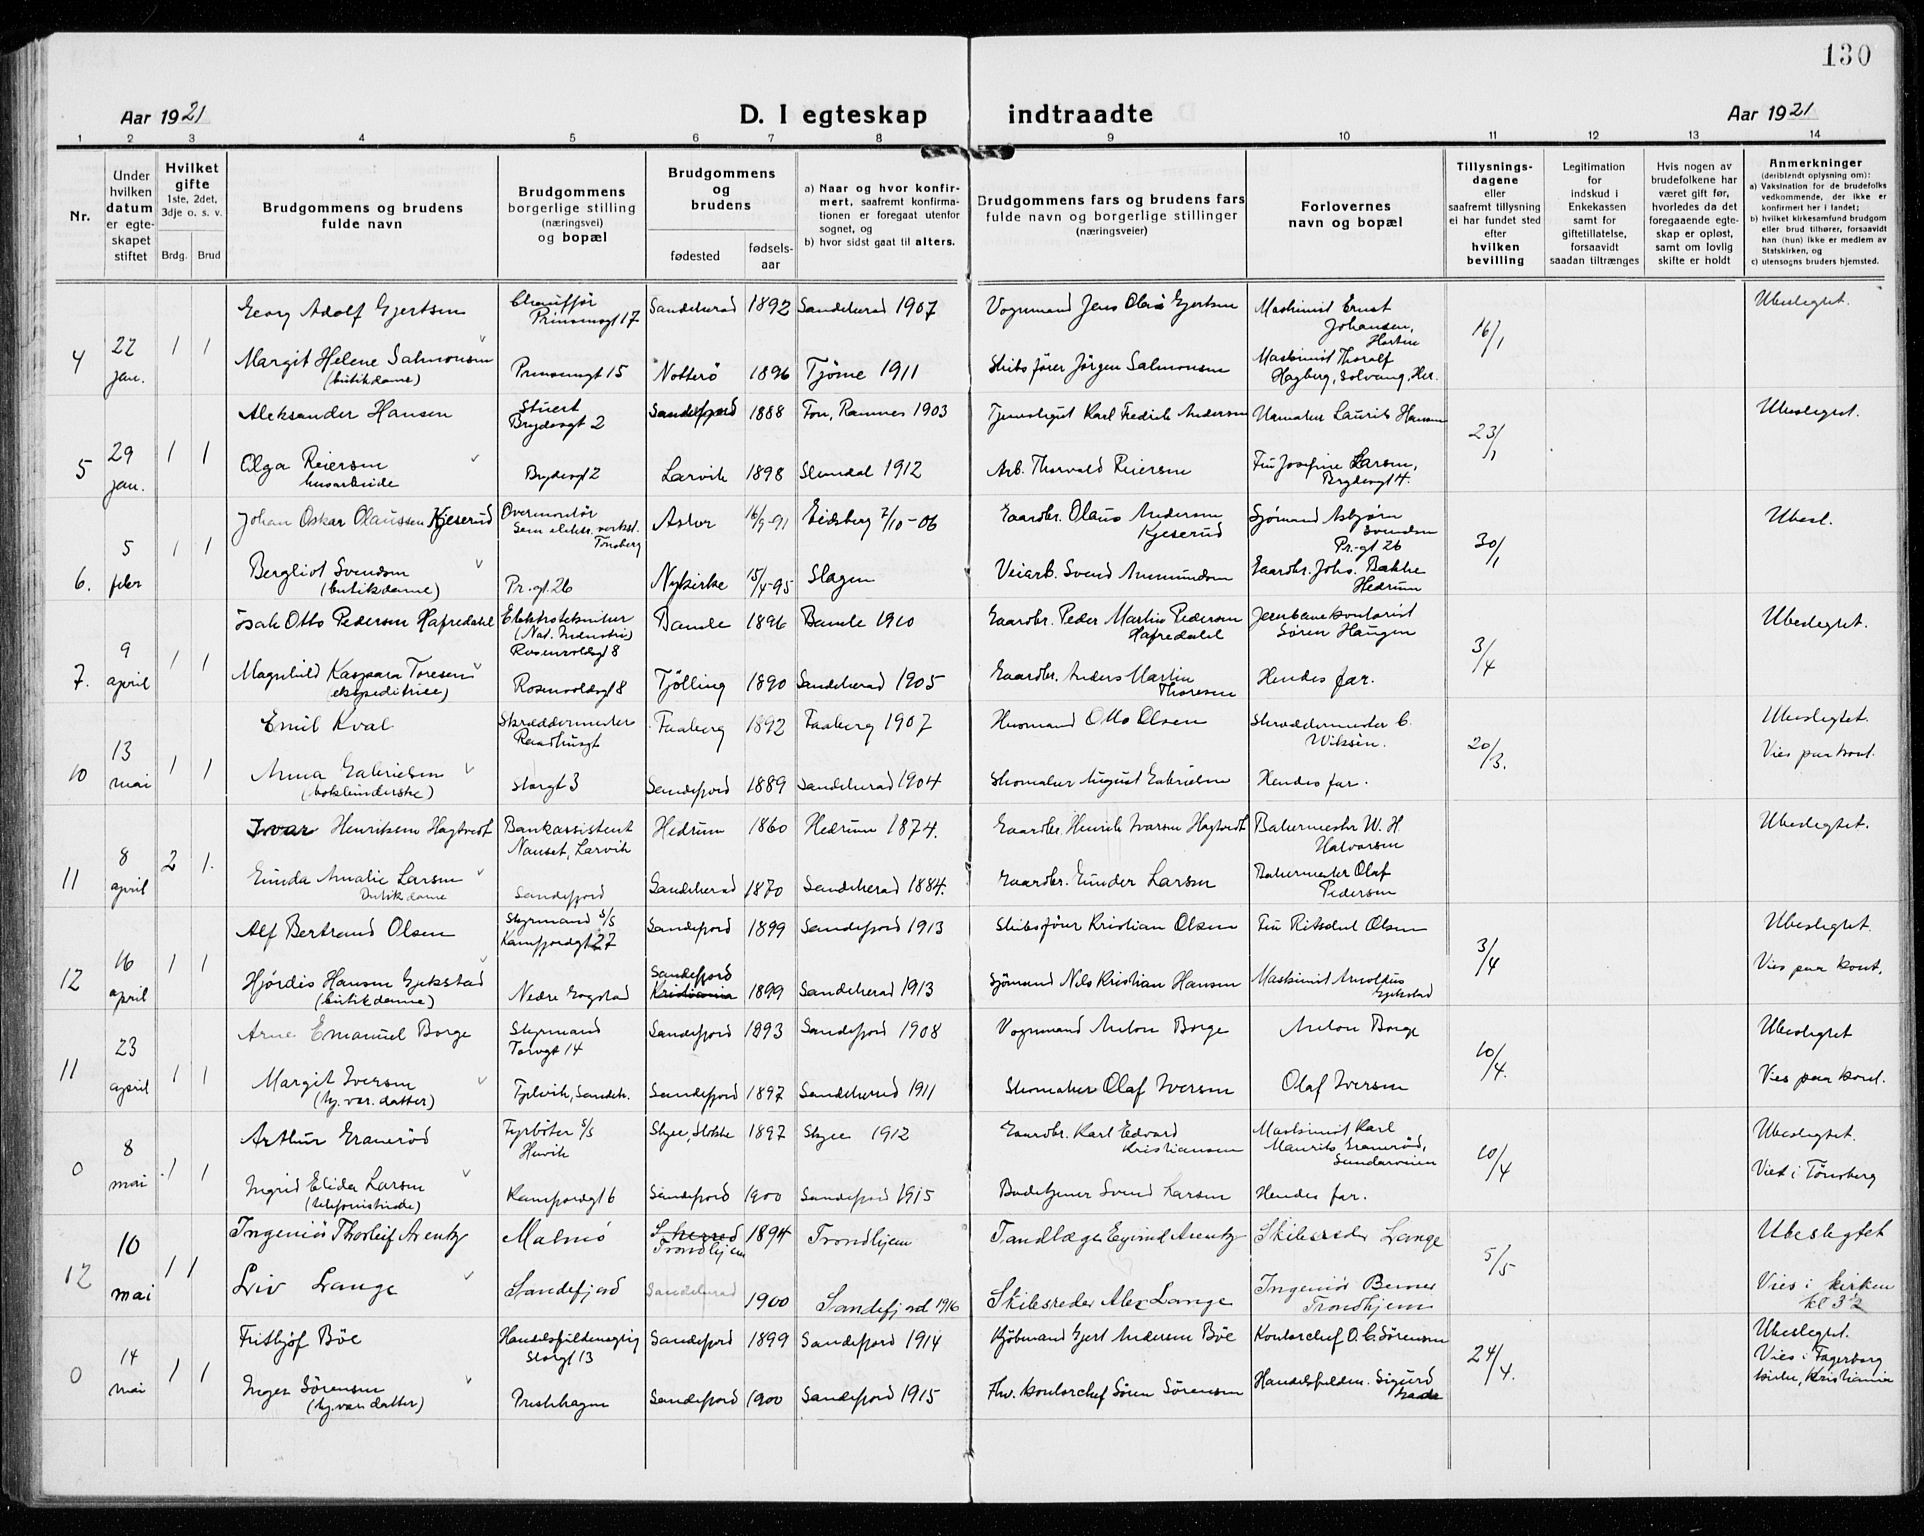 130
Aar 1921
D. I egteskap indtraadte
Aar 1921
1 2 3 4 5 6 7 8 9 10 11 12 13 14
Nr.
Under hvilken datum er egteskapet stiftet
Hvilket gifte
1ste, 2det, 3dje o. s. v.
Brdg. Brud
Brudgommens og brudens fulde navn
Brudgommens borgerlige stilling (næringsvei) og bopæl
Brudgommens og brudens
fødested
fødselsaar
a) Naar og hvor konfirmert, saafremt konfirmationen er foregaat utenfor sognet, og
b) hvor sidst gaat til alters.
Brudgommens fars og brudens fars fulde navn og borgerlige stillinger (næringsveier)
Forlovernes navn og bopæl
Tillysningsdagene eller saafremt tillysning ei har fundet sted efter hvilken bevilling
Legitimation for indskud i Enkekassen samt for giftetillatelse, forsaavidt saadan tiltrænges
Hvis nogen av brudefolkene har været gift før, hvorledes da det foregaaende egteskap er opløst, samt om lovlig skifte er holdt
Anmerkninger
(deriblendt oplysning om):
a) Vaksination for de brudefolks vedkommende, der ikke er konfirmert her i landet;
b) hvilket kirkesamfund brudgom eller brud tilhører, forsaavidt han (hun) ikke er medlem av Statskirken, og
c) utensogns bruders hjemsted.
4 22 jan. 1 1
Georg Adolf Gjertsen Chauffør Prinsensgt 17 Sandeherad 1892 Sandeherad 1907 Vognmand Jens Olaus Gjertsen Maskinist Ernst Johansen, Horten 16/1 Ubeslegtet.
Margit Helene Salmonsen (butikdame) Prinsensgt 15 Nötterö 1896 Tjöme 1911 Skibsfører Jørgen Salmonsen Maskinist Thoralf Hagberg, Solvang, Her.
5 29 jan. 1 1
Aleksander Hansen Stuert Brydesgt 2 Sandefjord 1888 Fon, Ramnes 1903 Tjenestegut Karl Fredrik Andersen Urmaker Laurits Hansen 23/1 Ubeslegtet.
Olga Reiersen husarbeide Brydesgt 2 Larvik 1898 Slemdal 1912 Arb. Thorvald Reiersen Fru Josefine Larsen, Brydesgt 4.
6. 5 febr 1 1
Johan Oskar Olaussen Kjeserud Overmontør Sem elektr. verkst. Tønsberg Asker 16/9-91 Eidsberg 7/10-06 Gaardbr. Olaus Andersen Kjeserud Sjømand Asbjørn Svendsen Pr.-gt 26 30/1 Ubesl.
Bergliot Svendsen (butikdame) Pr.-gt. 26 Nykirke 15/4-95 Slagen Veiarb. Svend Ammundsen Gaardbr. Johs. Bakke Hedrum
7. 9 april 1 1
Isak Otto Pedersen Hafredahl Elektrotekniker (Nat. Industri) Rosenvoldsgt 8 Bamle 1896 Bamle 1910 Gaardbr. Peder Martin Pedersen Hafredahl Jernbanekontorist Søren Haugen 3/4 Ubeslegtet.
Magnhild Kaspara Toresen (ekspeditrise) Rosenvoldsgt 8 Tjølling 1890 Sandeherad 1905 Gaardbr. Anders Martin Thoresen Hendes far.
10 13 mai 1 1
Emil Kval Skræddermester Raadhusgt Faaberg 1892 Faaberg 1907 Husmand Otto Olsen Skræddermester C. Wiksén. 20/3. Ubeslegtet.
Vies paa kont.
Anna Gabrielsen (bokbinderske) Storgt 3 Sandefjord 1889 Sandeherad 1904 Skomaker August Gabrielsen Hendes far.
11 8 april 2 1.
Ivar Henriksen Hagtvedt Bankassistent Nanset, Larvik Hedrum 1860 Hedrum 1874. Gaardbr. Henrik Ivarsen Hagtvedt Bakermester W. H Halvorsen Ubeslegtet.
Gunda Amalie Larsen Butikdame Sandefjord Sandeherad 1870 Sandeherad 1884. Gaardbr. Gunder Larsen Bakermester Olaf Pedersen
12 16 april 1 1
Alf Bertrand Olsen Styrmand S/S Kamfjordgt 27 Sandefjord 1899 Sandefjord 1913 Skibsfører Kristian Olsen Fru Olsen 3/4 Ubeslegtet.
Vies paa kont.
Hjørdis Hansen Gjekstad (butikdame) Nedre Gogstad Sandefjord Kristiania 1899 Sandeherad 1913 Sjømand Nils Kristian Hansen Maskinist Arnoldus Gjekstad
11 23 april 1 1
Arne Emanuel Borge Styrmand Torvgt 14 Sandefjord 1893 Sandefjord 1908 Vognmand Anton Borge Anton Borge 10/4. Ubeslegtet
Vies paa kont.
Margit Iversen (hj. vær. datter) Fjelvik, Sandeh. Sandefjord 1897 Sandeherred 1911 Skomaker Olaf Iversen Olaf Iversen
0 8 mai 1 1
Arthur Granerød Fyrbøter S/S Stokke 1897 1912 Gaardbr. Karl Edvard Kristiansen Maskinist Karl Maurits Granerød, 10/4 Ubeslegtet.
Viet i Tønsberg
Ingrid Elida Larsen (telefonistinde) Kamfjordgt 6 Sandefjord 1900 Sandefjord 1915 Budetjener Svend Larsen Hendes far.
12 10 mai 1 1
Ingeniör Thorleif Arentz Malmö S.herred Trondhjem 1894 Trondhjem Tandlæge Eyvind Arentz Skibsreder Lange 5/5 Ubeslegtet
Vies i kirken kl 3½
Liv Lange Sandefjord Sandeherad 1900 Sandefjord 1916 Skibsreder Alex Lange Ingeniör Berner Trondhjem
0 14 mai 1 1
Fritjøf Böe Handelsfuldmægtig Storgt 13 Sandefjord 1899 Sandefjord 1914 Kjöbmand Gjert Andersen Böe Kontorchef O. C. Sørensen 24/4. Ubeslegtet.
Vies i Fagerborg kirke, Kristiania
Inger Sørensen (hj. vær. datter) Prestehagen Sandefjord 1900 Sandefjord 1915 Fhv. kontorchef Søren Sørensen Handelsfuldm. Sigurd